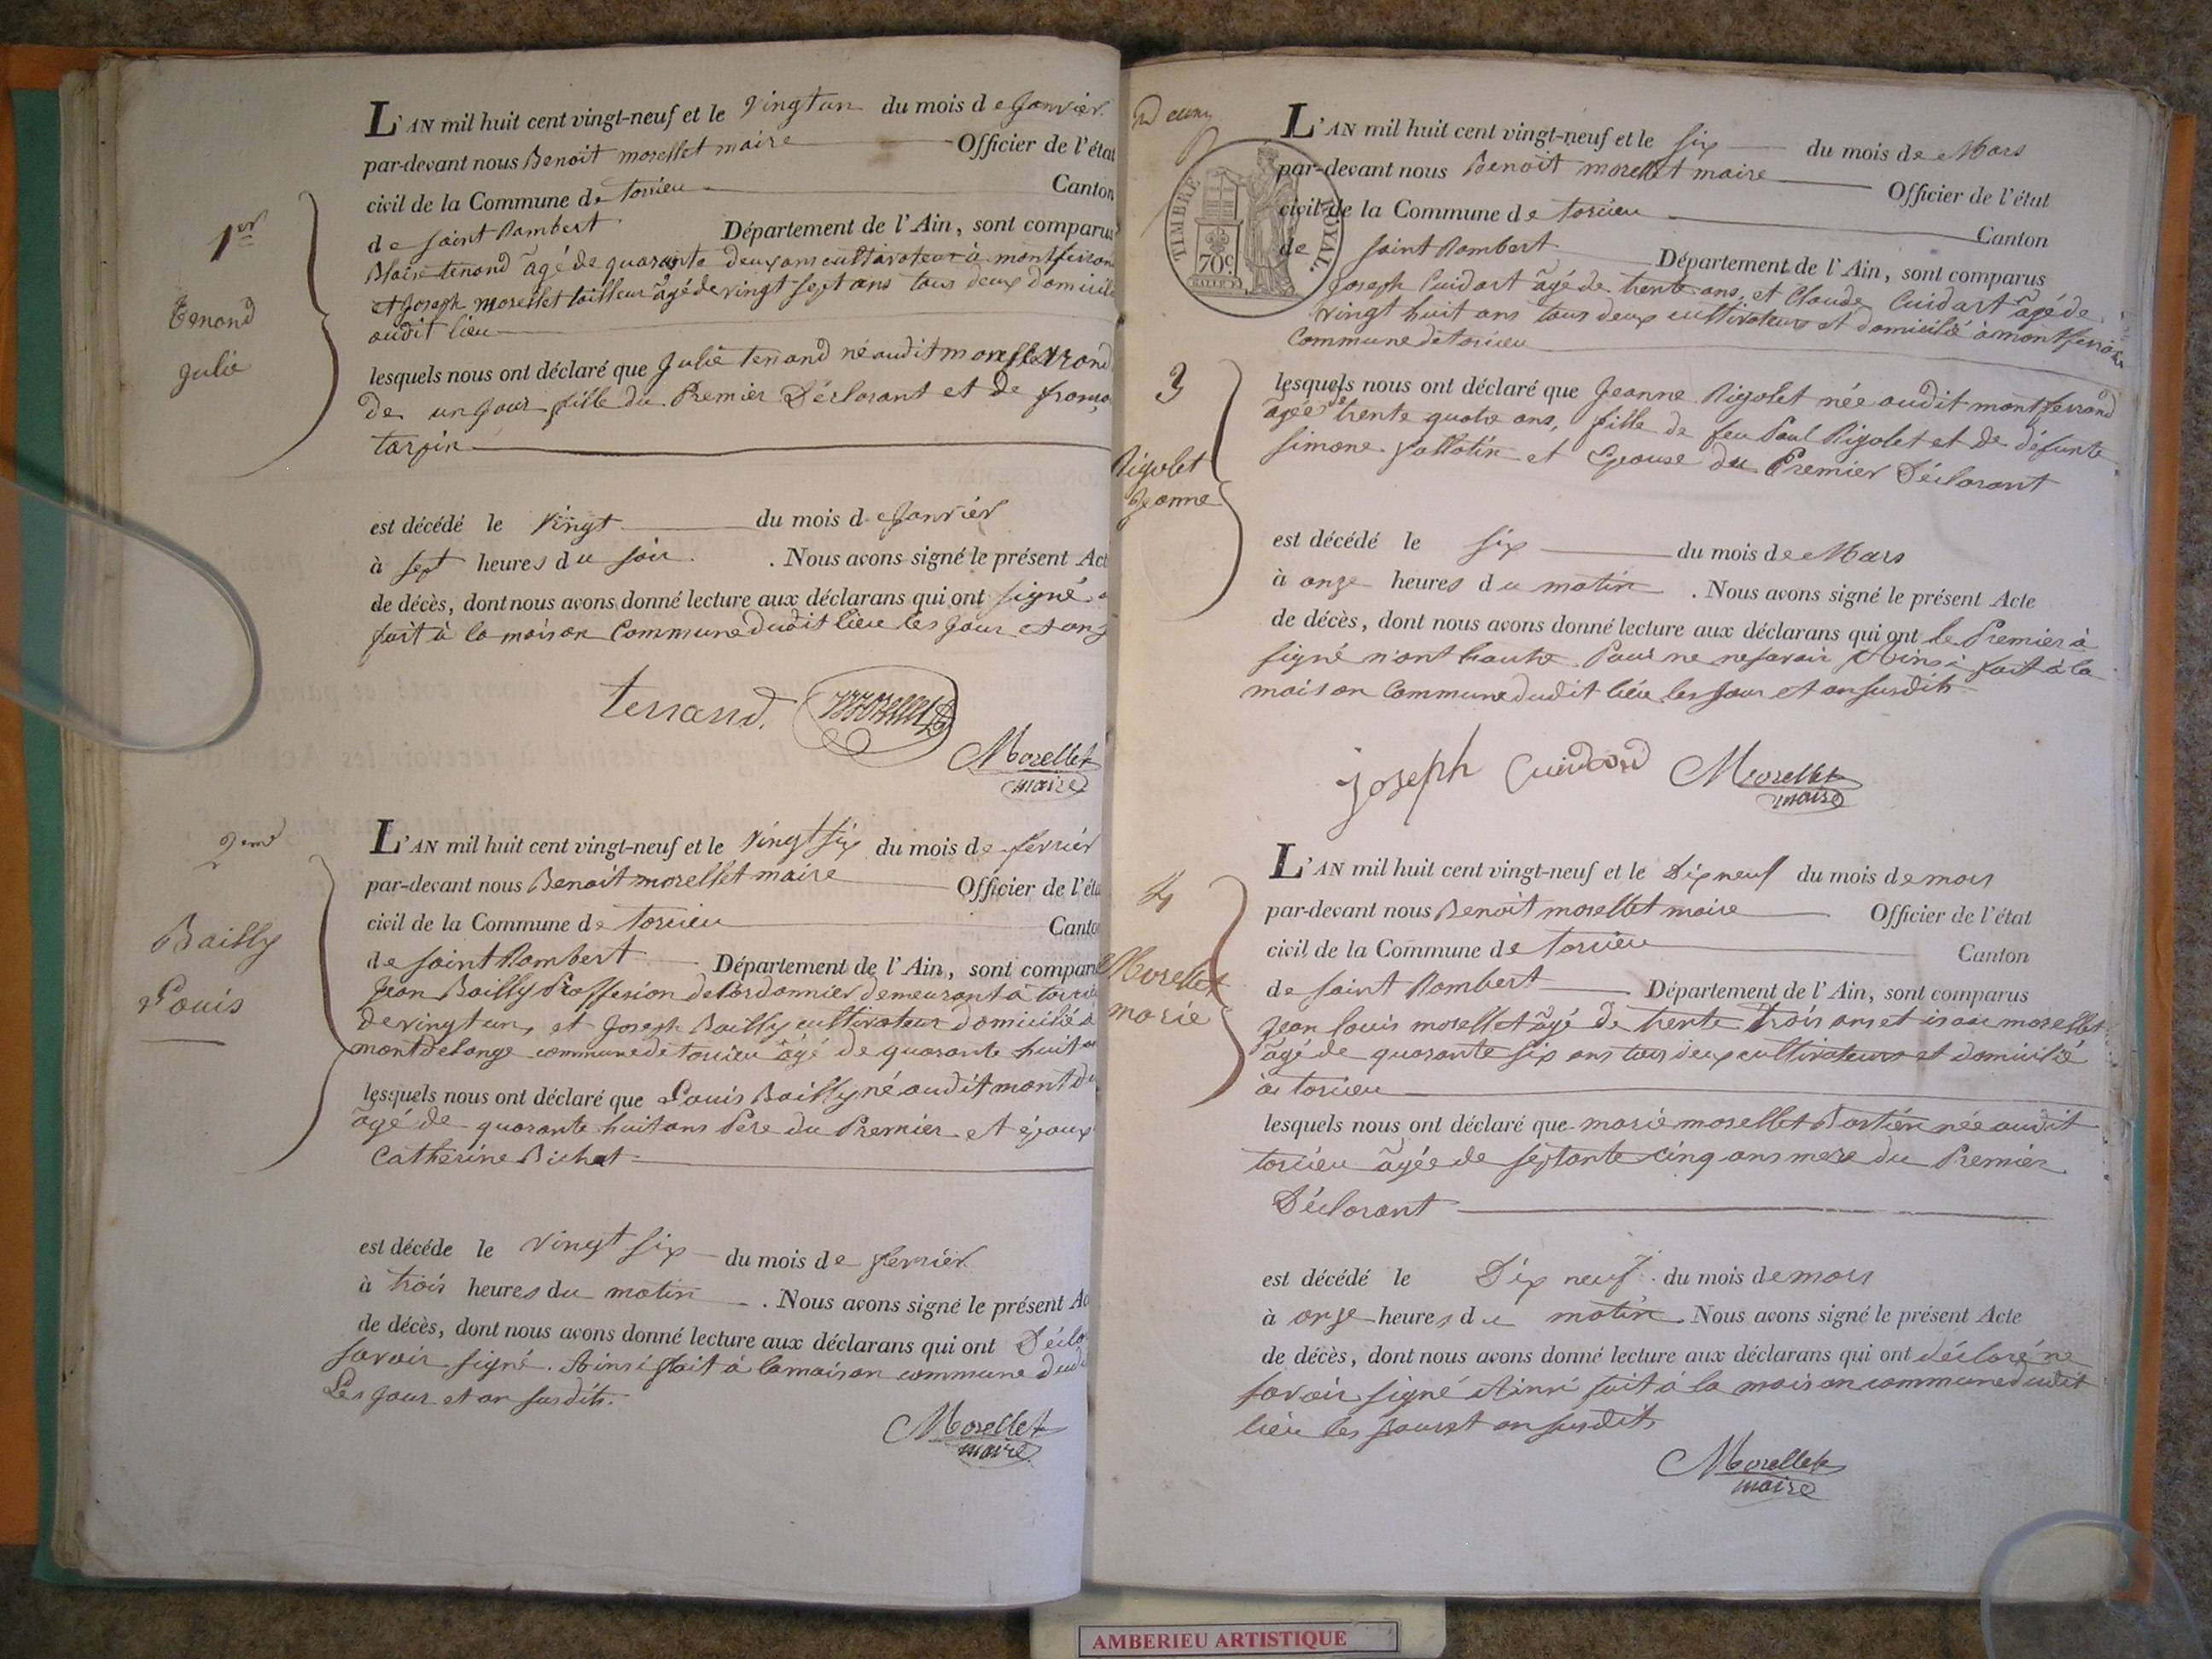 1er
Tenand
Julie
L'AN mil huit cent vingt-neuf et le vingt un du mois de Janvier
par-devant nous Benoit morellet maire Officier de l'état
civil de la Commune de torcieu Canton
de saint Rambert Département de l'Ain, sont comparus
Blaise tenand âgé de quarante deux ans cultivateur à montferran
et Joseph morellet tailleur âgé de vingt sept ans tous deux domicilié
audit lieu
lesquels nous ont déclaré que Julie tenand né audit
de un jour fille du Premier Déclarant et de
tarpin
est décédé le vingt du mois de Janvier
à sept heures du soir. Nous avons signé le présent Act
de décès, dont nous avons donné lecture aux déclarans qui ont signé
fait à la maison Commune dudit lieu les jour et an
tenand. Morellet
Morellet
maire
2eme
Bailly
Louis
L'AN mil huit cent vingt-neuf et le vingt six du mois de fevrier
par-devant nous Benoit morellet maire Officier de l'éta
civil de la Commune de torcieu Canto
de saint Rambert Département de l'Ain, sont compar
Jean Bailly Proffesion de Cordonnier demeurant à torcieu
de vingt un, et Joseph Bailly cultivateur domicilié à
montdelange commune de torcieu âgé de quarante huit
lesquels nous ont déclaré que Louis Bailly né audit mont de
âgé de quarante huit ans Pere du Premier et epoux
Catherine Bichat
est décédé le vingt six du mois de fevrier
à trois heures du matin. Nous avons signé le présent Ac
de décès, dont nous avons donné lecture aux déclarans qui ont Décla
savoir signé. Ainsi fait à la maison commune dudi
Les jour et an susdits.
Morellet
maire
TIMBRE ROYAL.
70c
3
Rigolet
Jeanne
L'AN mil huit cent vingt-neuf et le six du mois de Mars
par-devant nous Benoit morellet maire Officier de l'état
civil de la Commune de torcieu Canton
de saint Rambert Département de l'Ain, sont comparus
Joseph Cuidart âgé de trente ans, et Claude Cuidart âgé de
vingt huit ans tous deux cultivateurs et domicilié à montferrand
Commune de torcieu
lesquels nous ont déclaré que Jeanne Rigolet née audit montferrand
âgée de trente quatre ans, fille de feu Paul Rigolet et de défunte
simone vallotin et Epouse du Premier Déclarant
est décédé le six du mois de Mars
à onze heures du matin. Nous avons signé le présent Acte
de décès, dont nous avons donné lecture aux déclarans qui ont le Premier à
signé n'ont l'autre Pour ne ne savoir Ainsi fait à la
maison Commune dudit lieu les jour et an susdits
Joseph Cuidard Morellet
maire
4
Morellet
marie
L'AN mil huit cent vingt-neuf et le Dix neuf du mois de mars
par-devant nous Benoit morellet maire Officier de l'état
civil de la Commune de torcieu Canton
de saint Rambert Département de l'Ain, sont comparus
Jean louis morellet âgé de trente trois ans et isaac morellet
âgé de quarante six ans tous deux cultivateurs et domicilié
à torcieu
lesquels nous ont déclaré que marie morellet née audit
torcieu âgée de septante cinq ans mere du Premier
Déclarant
est décédé le Dix neuf du mois de mars
à onze heures du matin. Nous avons signé le présent Acte
de décès, dont nous avons donné lecture aux déclarans qui ont déclaré ne
savoir signé Ainsi fait à la maison commune dudit
lieu les jour et an susdits
Morellet
maire
AMBERIEU ARTISTIQUE